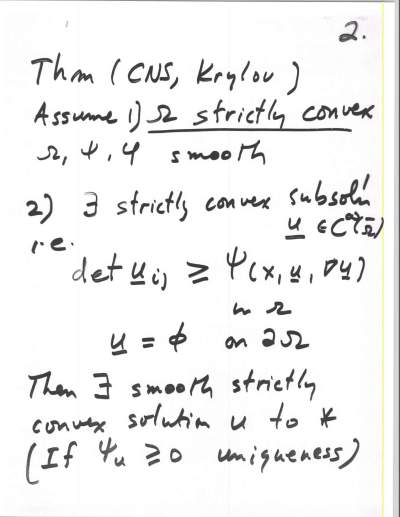 2.
Thm (CNS, Krylov)
Assume 1) Ω strictly convex
Ω, ψ, φ smooth
2) ∃ strictly convex subsoln
i.e. u̲ ∈ C^∞(Ω̄)
det u̲ij ≥ Ψ(x, u̲, ∇u̲)
in Ω
u̲ = ϕ on ∂Ω
Then ∃ smooth strictly
convex solution u to *
(If Ψu ≥ 0 uniqueness)